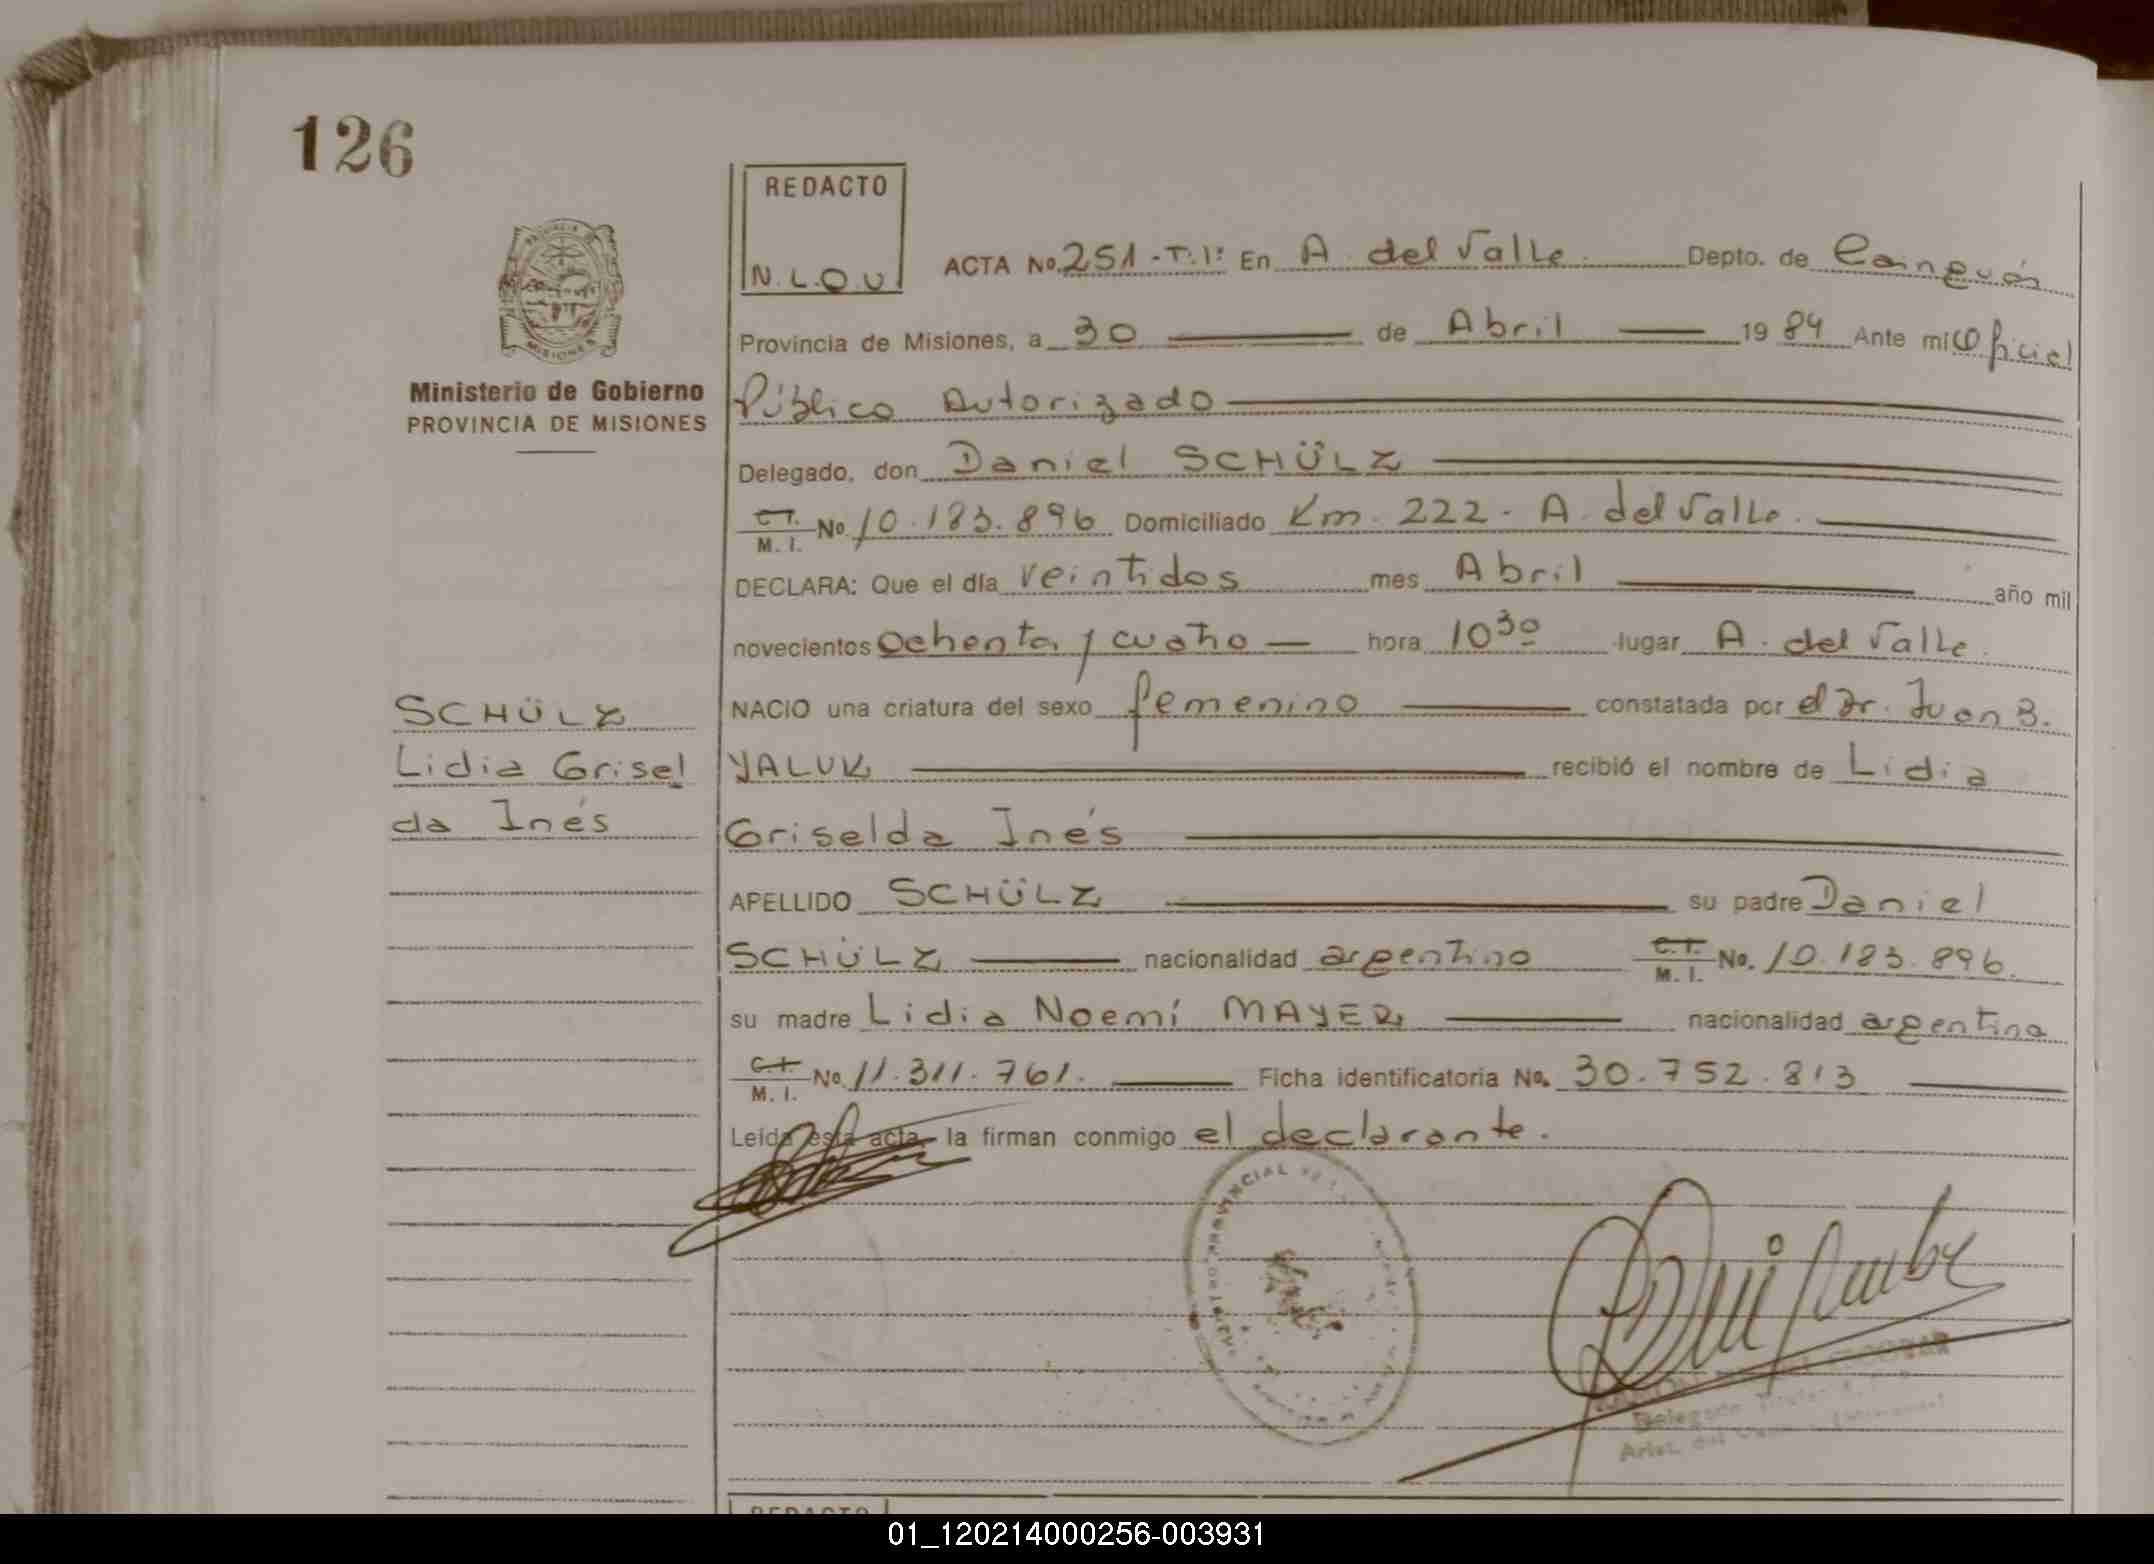 126
REDACTO
N.L.Q.U.
ACTA No. 251 - T.1º En A. del Valle. Depto. de Cainguás
PROVINCIA DE
MISIONES
Provincia de Misiones, a 30 de Abril 19 84 Ante mi Oficial
Ministerio de Gobierno
PROVINCIA DE MISIONES
Público Autorizado
Delegado, don Daniel SCHÜLZ
C.I. M. I. No. 10.183.896 Domiciliado Km. 222 - A. del Valle.
DECLARA: Que el día veintidos mes Abril año mil
novecientos ochenta y cuatro hora 10 30 lugar A. del Valle.
SCHÜLZ
Lidia Grisel
da Inés
NACIO una criatura del sexo femenino constatada por el Dr. Juan B.
YALUK recibió el nombre de Lidia
Griselda Inés
APELLIDO SCHÜLZ su padre Daniel
SCHÜLZ nacionalidad argentino C.I. M. I. No. 10.183.896.
su madre Lidia Noemí MAYER nacionalidad argentina
C.I. M. I. No 11.311.761. Ficha identificatoria No. 30.752.813
Leída esta acta, la firman conmigo el declarante.
PROVINCIAL
ESCOBAR
Delegado Titular
REDACTO
01_120214000256-003931